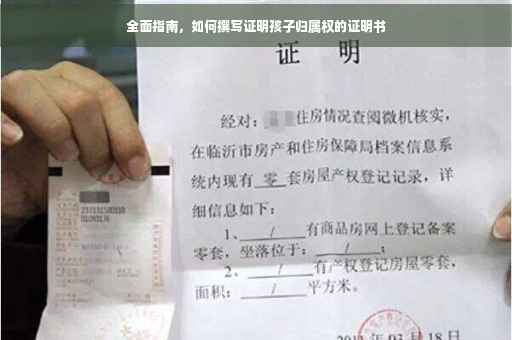 全面指南，如何撰写证明孩子归属权的证明书
证 明
经对：住房情况查阅微机核实，
在临沂市房产和住房保障局档案信息系
统内现有 零 套房屋产权登记记录，详
细信息如下：
1、 / 有商品房网上登记备案
零套，坐落位于： / ；
2、 / 有产权登记房屋零套，
面积： / 平方米。
03 月 18 日